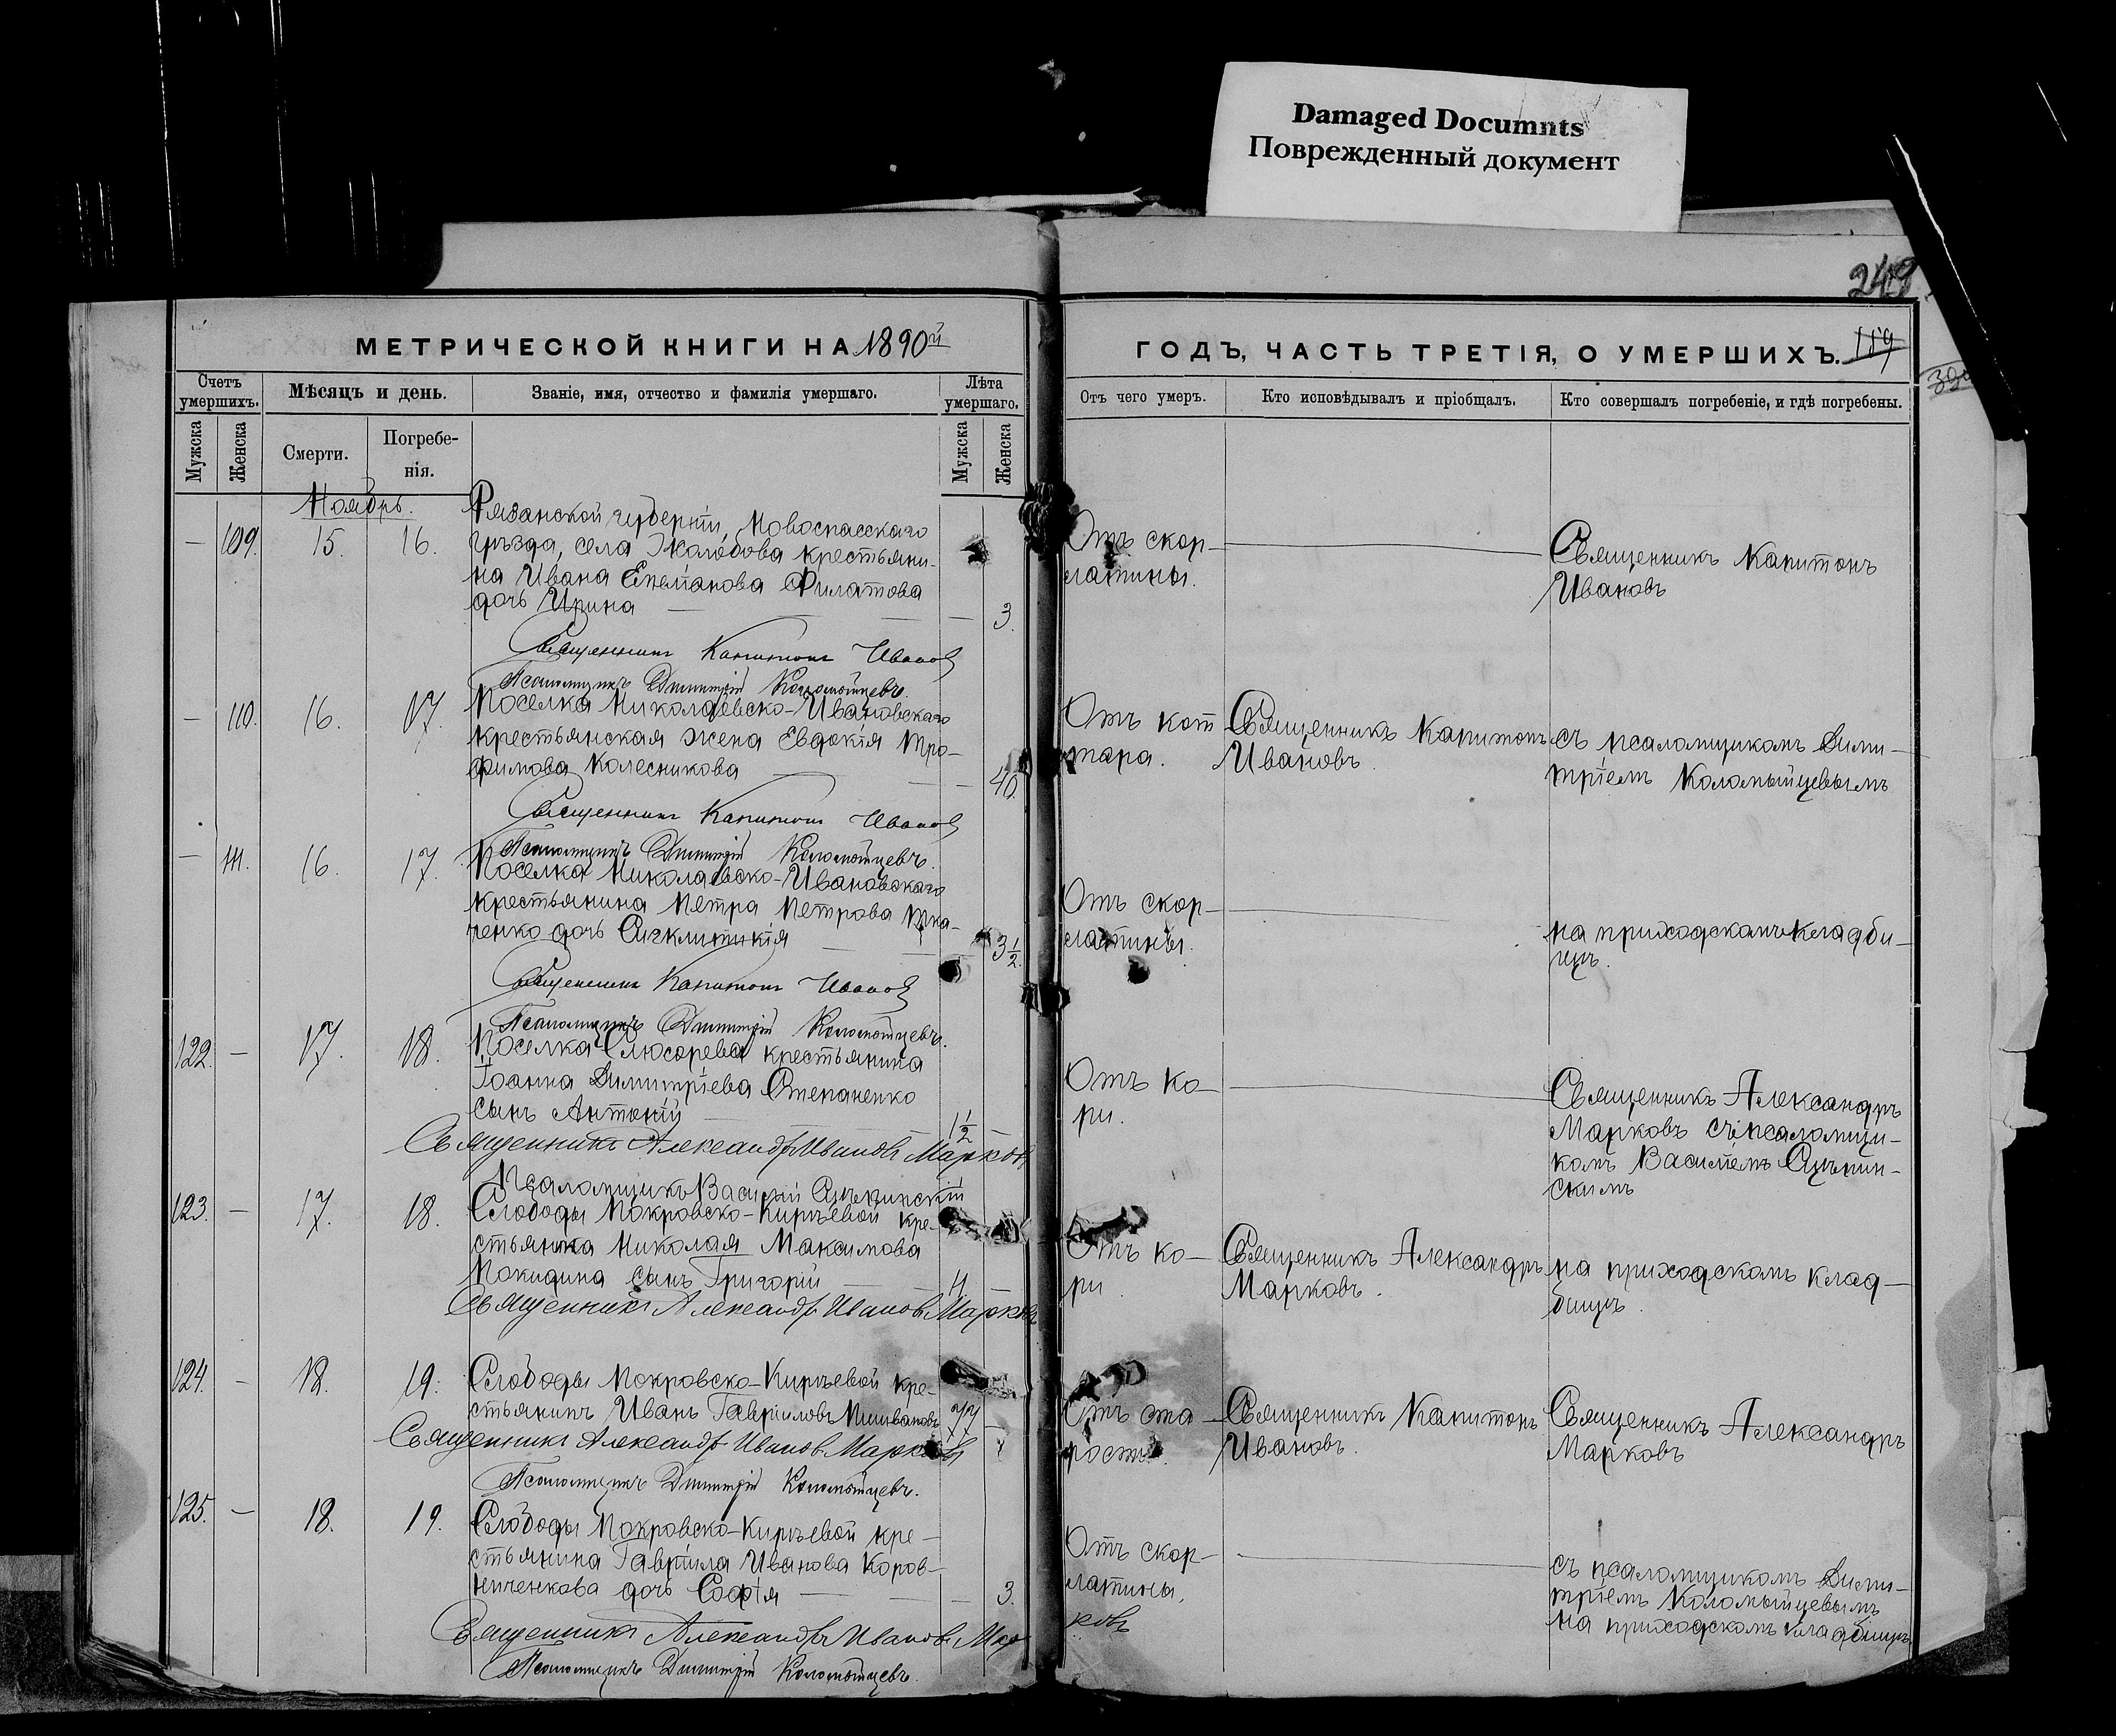 Damaged Documnts
Поврежденный документ
249
МЕТРИЧЕСКОЙ КНИГИ НА 1890й
ГОДЪ, ЧАСТЬ ТРЕТІЯ, О УМЕРШИХЪ. 119
Счетъ умершихъ.
Мѣсяцъ и день.
Званіе, имя, отчество и фамилія умершаго.
Лѣта умершаго.
Отъ чего умеръ.
Кто исповѣдывалъ и пріобщалъ.
Кто совершалъ погребеніе, и гдѣ погребены.
Мужска
Женска
Смерти.
Погребе-
нія.
Мужска
Женска
Ноябрь.
— 109. 15. 16.
Рязанской губерніи,
уѣзда, села крестьяни-
на Ивана Филатова
дочь Ирина — — 3.
Отъ скор-
латины.
Священникъ Капитонъ
Ивановъ
Священникъ Капитонъ Ивановъ
Псаломщикъ Димитрій Коломыйцевъ.
— 110. 16. 17.
Поселка Николаевско-Ивановскаго
крестьянская жена Евдокія Тро-
фимова Колесникова — — 40.
Отъ кат
тара.
Священникъ Капитонъ
Ивановъ.
съ псаломщикомъ Дими-
тріемъ Коломыйцевымъ
Священникъ Капитонъ Ивановъ
Псаломщикъ Димитрій Коломыйцевъ.
— 111. 16. 17.
Поселка Николаевско-Ивановскаго
крестьянина Петра Петрова Тка-
ченко дочь Сигклитикія — 3½.
Отъ скор-
латины.
на приходскомъ кладби-
щѣ.
Священникъ Капитонъ Ивановъ
Псаломщикъ Димитрій Коломыйцевъ.
122. — 17. 18.
Поселка Слюсарева крестьянина
Іоанна Димитріева Степаненко
сынъ Антоній — ½ —
Отъ ко-
ри.
Священникъ Александръ
Марковъ съ псаломщи-
комъ Василіемъ
скимъ
Священникъ Александръ Ивановъ Марковъ
Псаломщикъ Василій
123. — 17. 18.
Слободы Покровско-Кирѣевой кре-
стьянина Николая Максимова
Покидина сынъ Григорій — 4
Отъ ко-
ри.
Священникъ Александръ
Марковъ.
на приходскомъ клад-
бищѣ.
Священникъ Александръ Ивановъ Марковъ
124. — 18. 19.
Слободы Покровско-Кирѣевой кре-
стьянинъ Иванъ Гавріиловъ 77 —
Отъ ста-
рости.
Священникъ Капитонъ
Ивановъ.
Священникъ Александръ
Марковъ
Священникъ Александръ Ивановъ Марковъ
Псаломщикъ Димитрій Коломыйцевъ.
125. — 18. 19.
Слободы Покровско-Кирѣевой кре-
стьянина Гавріила Иванова Коров-
ниченкова дочь Софія — — 3.
Отъ скор-
латины.
съ псаломщикомъ Дими-
тріемъ Коломыйцевымъ
на приходскомъ кладбищѣ
Священникъ Александръ Ивановъ Мар
ковъ
Псаломщикъ Димитрій Коломыйцевъ.